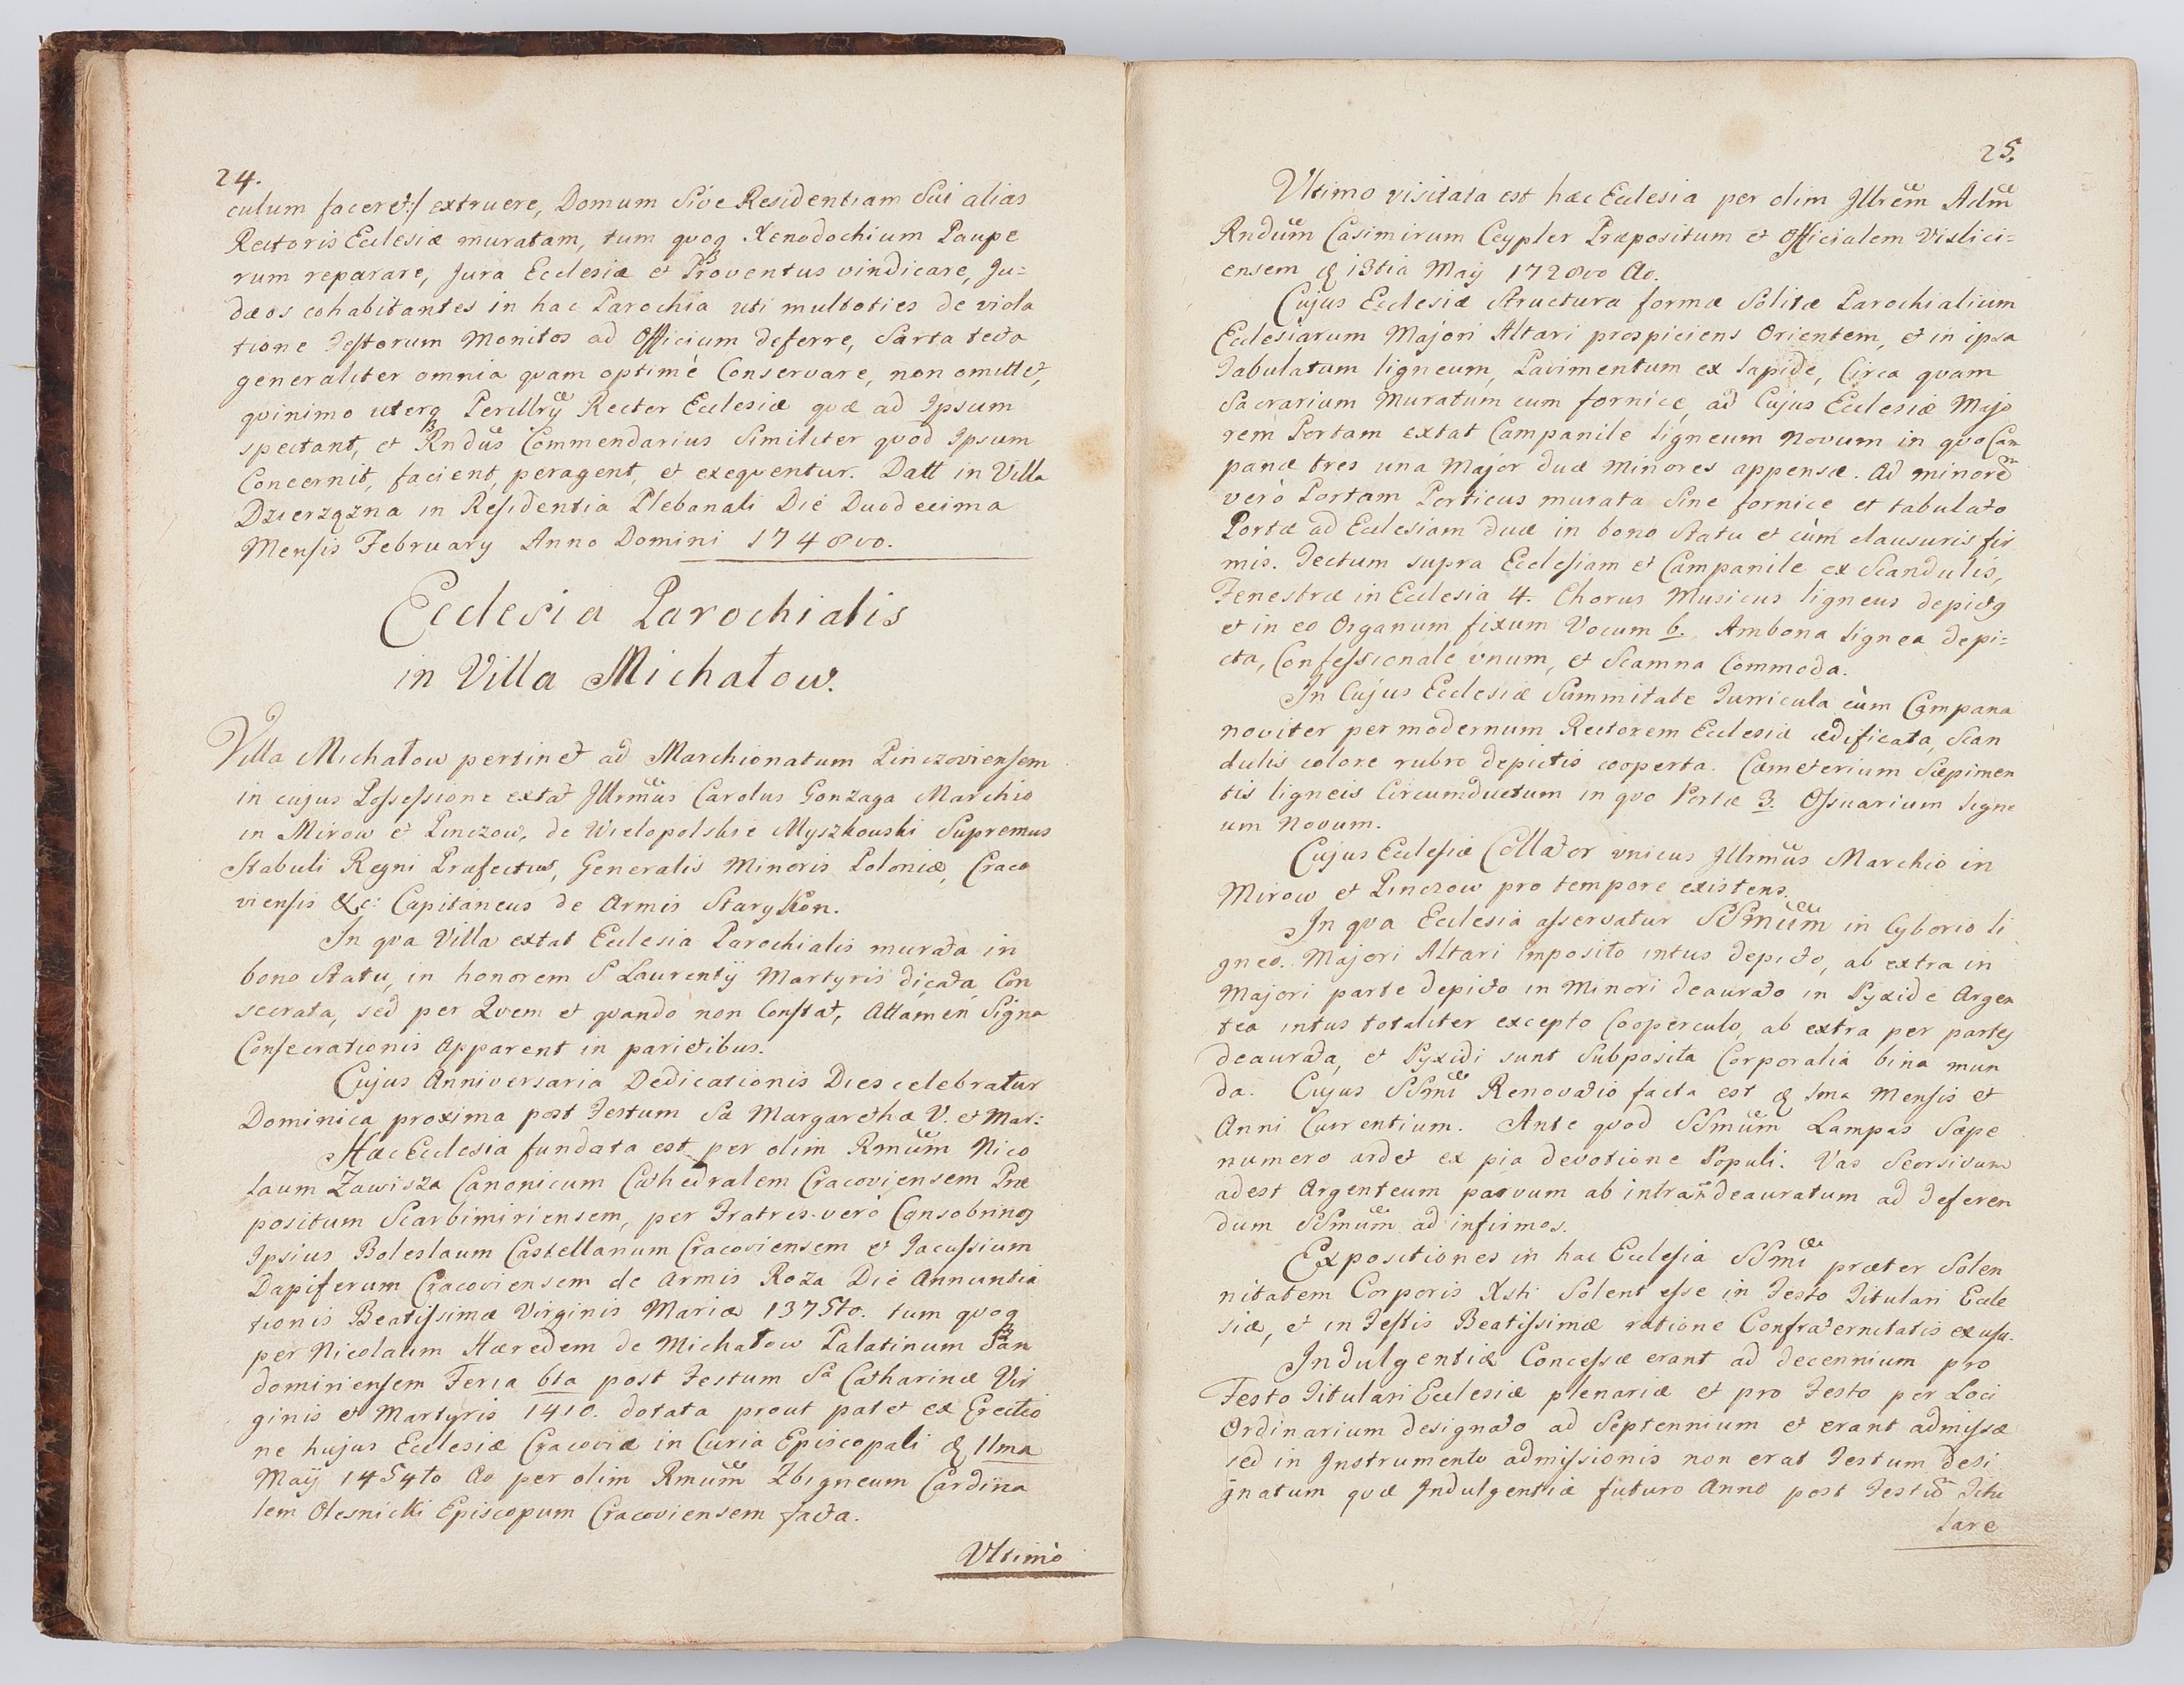 24.
culum faceret:/ extruere, Domum Sive Residentiam Sui alias
Rectoris Ecclesiæ muratam, tum quoq Xenodochium Paupe
rum reparare, Jura Ecclesiæ et Proventus vindicare, Ju=
dæos cohabitantes in hac Parochia uti multoties de viola
tione Festorum Monitos ad Officium deferre, Sarta tecta
generaliter omnia quam optimè Conservare, non omittet,
quinimo uterq Perillry Rector Ecclesiæ quæ ad Ipsum
spectant, et Rndus Commendarius Similiter quod Ipsum
Concernit, facient, peragent, et exequentur. Datt in Villa
Dzierzązna in Residentia Plebanali Die Duodecima
Mensis February Anno Domini 1748vo.
Ecclesia Parochialis
in Villa Michałow.
Villa Michałow pertinet ad Marchionatum Pinczoviensem
in cujus Possessione extat Jllrmus Carolus Gonzaga Marchio
in Mirow et Pinczow, de Wielopolskie Myszkowski Supremus
Stabuli Regni Præfectus, Generalis Minoris Poloniæ, Craco
viensis &c: Capitaneus de Armis Starykon.
In qva Villa extat Ecclesia Parochialis murata in
bono statu, in honorem S Laurentij Martyris dicata Con
secrata, sed per Quem et quando non Constat, Attamen Signa
Consecrationis Apparent in parietibus.
Cujus Anniversaria Dedicationis Dies celebratur
Dominica proxima post Festum Sæ Margarethæ V. et Mar:
Hæc Ecclesia fundata est per olim Rmum Nico
laum Zawisza Canonicum Cathedralem Cracoviensem Præ
positum Scarbimiriensem, per Fratres verò Consobrinos
Ipsius Boleslaum Castellanum Cracoviensem et Jacussium
Dapiferum Cracoviensem de Armis Roza Die Annuntia
tionis Beatissimæ Virginis Mariæ 1375to. tum quoq
per Nicolaum Hæredem de Michałow Palatinum San
domiriensem Feria 6ta post Festum Sæ Catharinæ Vir
ginis et Martyris 1410. dotata prout patet ex Erectio
ne hujus Ecclesiæ Cracoviæ in Curia Episcopali d 11ma
Maij 1454to Ao per olim Rmum Zbigneum Cardina
lem Olesnicki Episcopum Cracoviensem facta.
Vltimò
25.
Vltimo visitata est hæc Ecclesia per olim Jllrem Adm
Rndum Casimirum Ceypler Præpositum et Officialem Vislici=
ensem d 13tia Maij 1728vo Ao.
Cujus Ecclesiæ Structura formæ Solitæ Parochialium
Ecclesiarum Majori Altari prospiciens Orientem, et in ipsa
Tabulatum ligneum, Pavimentum ex lapide, Circa quam
Sacrarium Muratum cum fornice, ad Cujus Ecclesiæ Majo
rem Portam extat Campanile ligneum Novum in quo Cam
panæ tres una Major duæ Minores appensæ. Ad minorem
verò Portam Porticus murata Sine fornice et tabulato
Portæ ad Ecclesiam duæ in bono Statu et cùm clausuris fir
mis. Tectum supra Ecclesiam et Campanile ex Scandulis,
Fenestræ in Ecclesia 4. Chorus Musicus ligneus depictq
et in eo Organum fixum Vocum 6. Ambona lignea depi=
cta, Confessionale vnum, et Scamna Commoda.
In Cujus Ecclesiæ Summitate Turricula cùm Campana
noviter per modernum Rectorem Ecclesiæ ædificata, Scan
dulis colore rubro depictis cooperta. Cæmeterium Sæpimen
tis ligneis Circumductum in quo Portæ 3. Ossuarium ligne
um Novum.
Cujus Ecclesiæ Collator vnicus Jllrmus Marchio in
Mirow et Pinczow pro tempore existens.
In qva Ecclesia asservatur SSmum in Cyborio li
gneo. Majori Altari imposito intus depicto, ab extra in
Majori parte depicto in Minori deaurato in Pyxide Argen
tea intus totaliter excepto Cooperculo, ab extra per partes
deaurata, et Pyxidi sunt Subposita Corporalia bina mun
da. Cujus SSmi Renovatio facta est d 1ma Mensis et
Anni Currentium. Ante quod SSmum Lampas Sæpe
numero ardet ex pia devotione Populi. Vas Seorsivum
adest Argenteum parvum ab intra deauratum ad deferen
dum SSmum ad infirmos.
Expositiones in hac Ecclesia SSmi præter Solen
nitatem Corporis Xsti Solent esse in Festo Titulari Eccle
siæ, et in Festis Beatissimæ ratione Confraternitatis ex usu.
Indulgentiæ Concessæ erant ad decennium pro
Festo Titulari Ecclesiæ plenariæ et pro Festo per Loci
Ordinarium designato ad Septennium et erant admissæ
sed in Instrumento admissionis non erat Festum desi
gnatum quæ Indulgentiæ futuro Anno post Festum Titu
lare